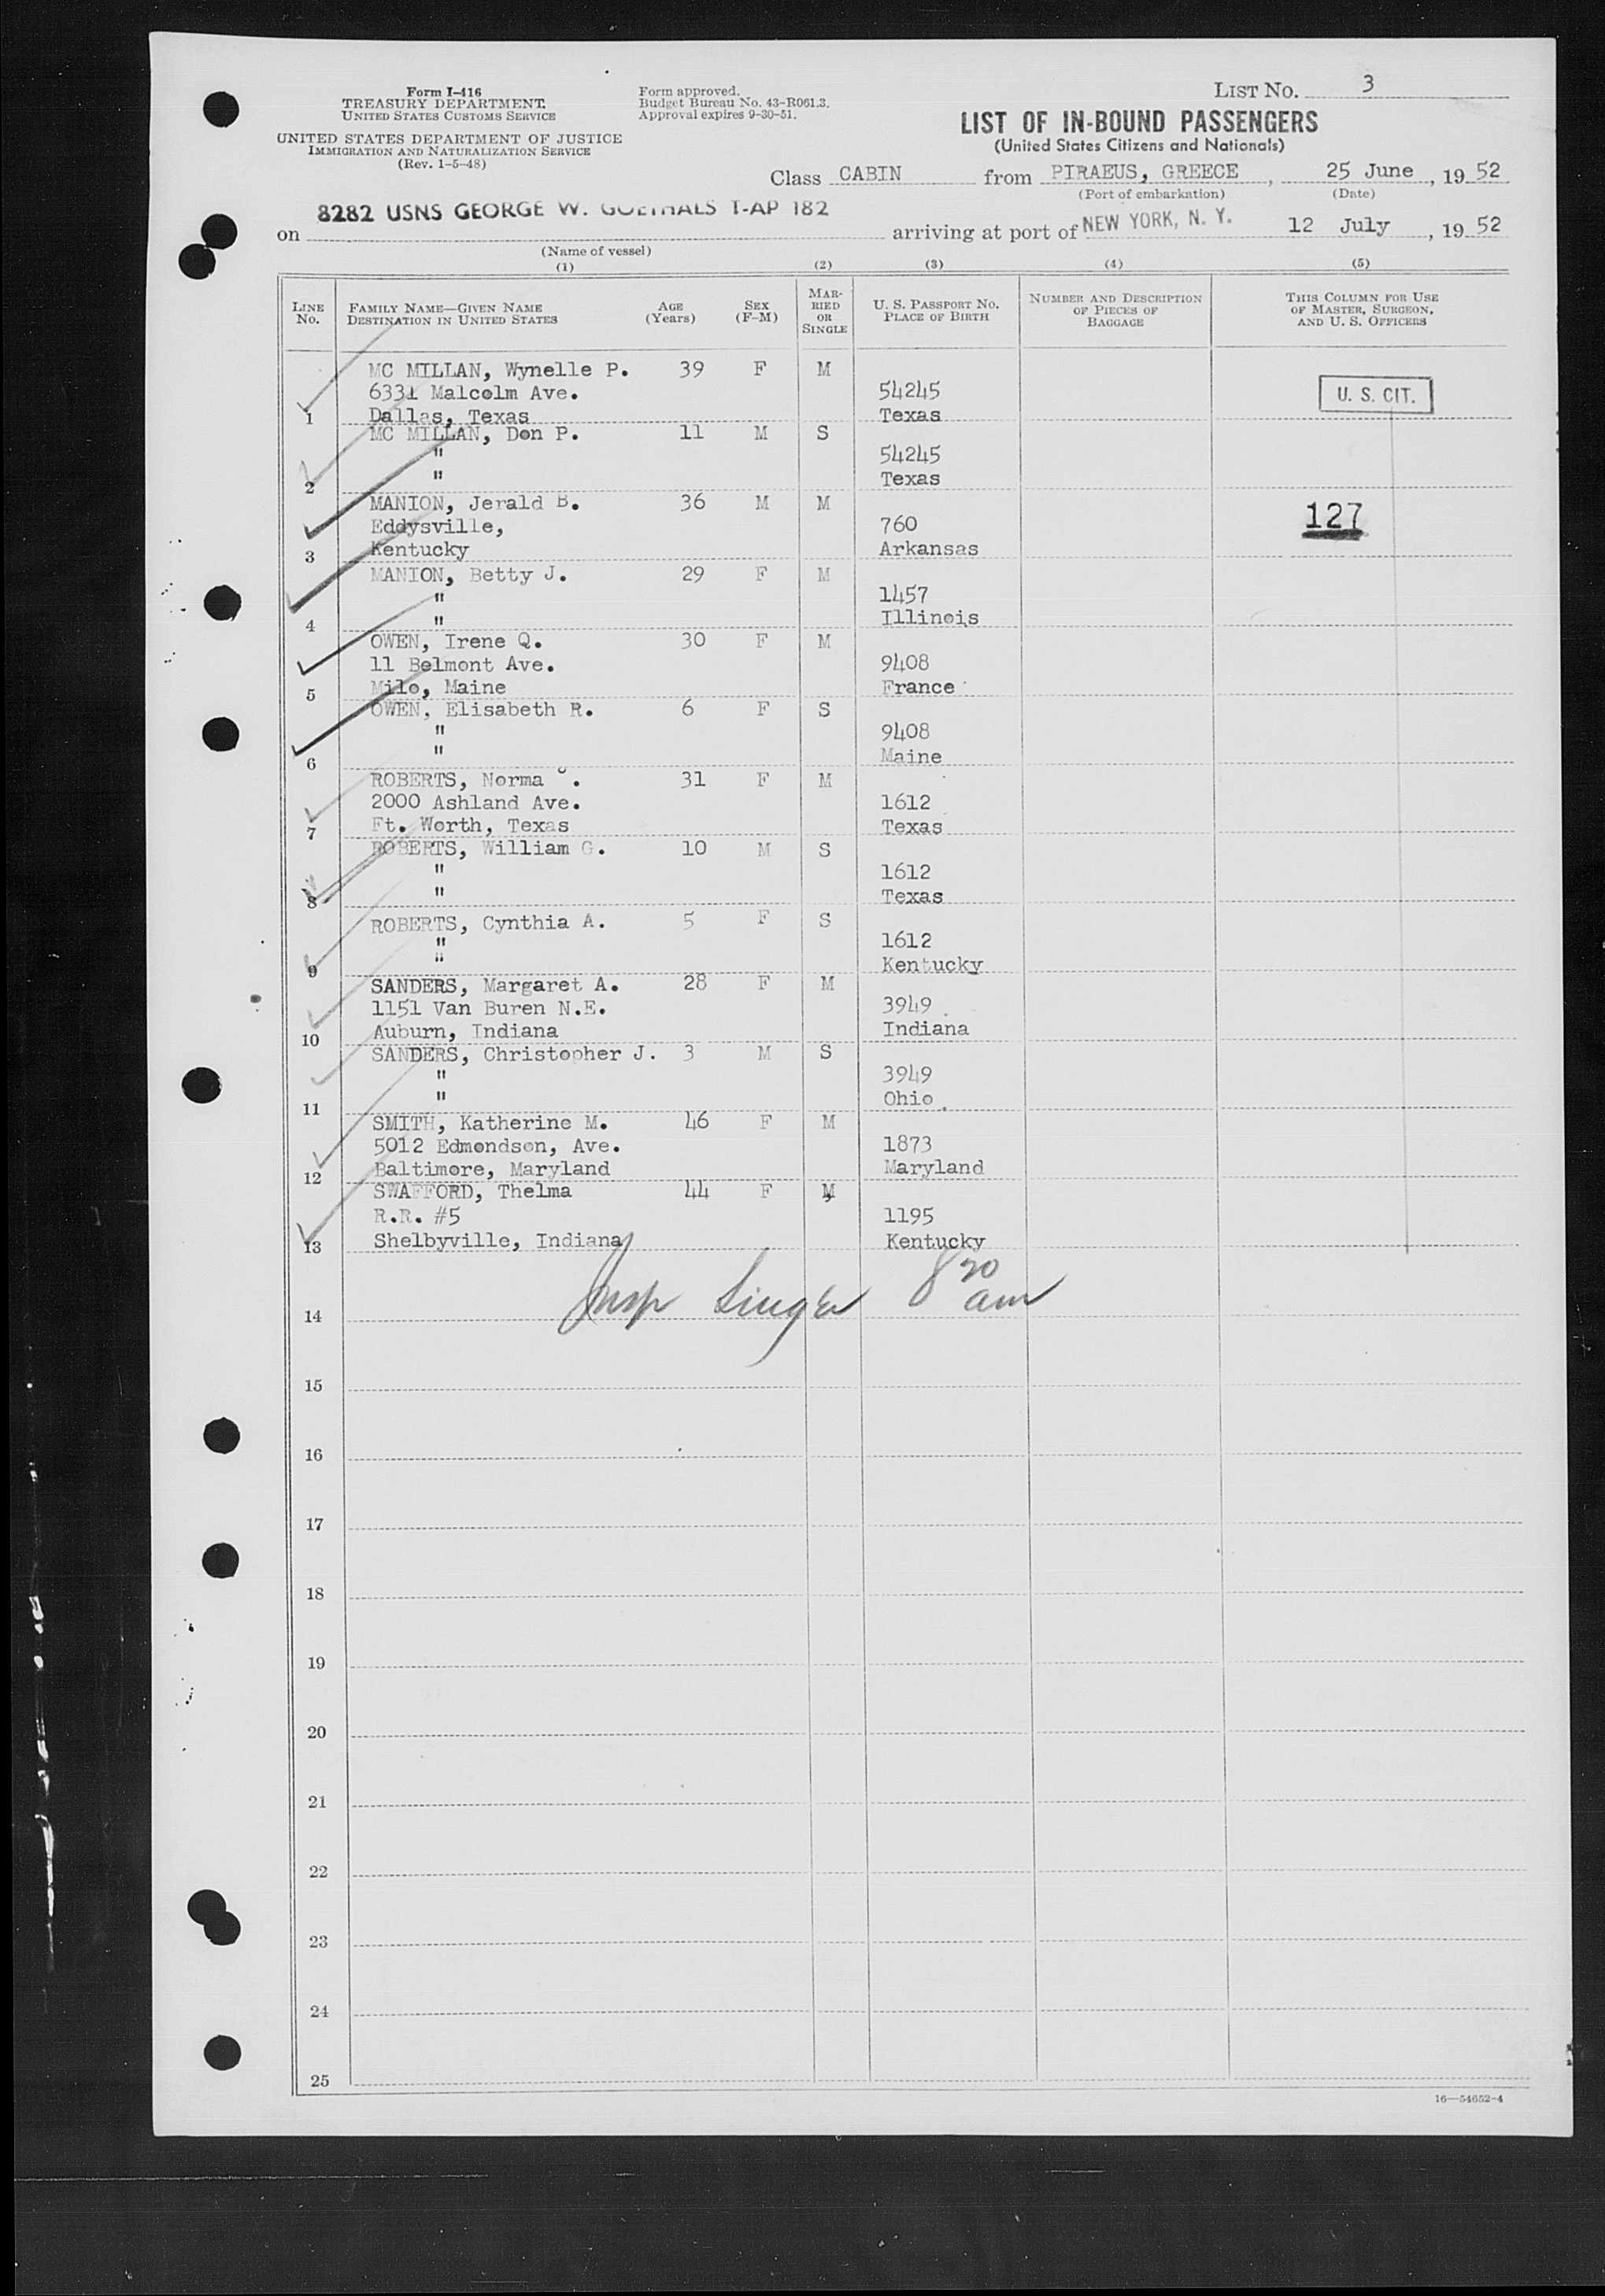 Form I-416
TREASURY DEPARTMENT
UNITED STATES CUSTOMS SERVICE
UNITED STATES DEPARTMENT OF JUSTICE
IMMIGRATION AND NATURALIZATION SERVICE
(Rev. 1-5-48)
Form approved.
Budget Bureau No. 43-R061.3.
Approval expires 9-30-51.
LIST NO. 3
LIST OF IN-BOUND PASSENGERS
(United States Citizens and Nationals)
Class CABIN from PIRAEUS, GREECE, 25 June, 1952
(Port of embarkation) (Date)
on 8282 USNS GEORGE W. GOETHALS T-AP 182 arriving at port of NEW YORK, N. Y. 12 July, 1952
(Name of vessel)
(1) (2) (3) (4) (5)
LINE NO. FAMILY NAME—GIVEN NAME DESTINATION IN UNITED STATES AGE (Years) SEX (F-M) MARRIED OR SINGLE U. S. PASSPORT NO. PLACE OF BIRTH NUMBER AND DESCRIPTION OF PIECES OF BAGGAGE THIS COLUMN FOR USE OF MASTER, SURGEON, AND U. S. OFFICERS
MC MILLAN, Wynelle P. 39 F M
6331 Malcolm Ave. 54245 U. S. CIT.
1 Dallas, Texas Texas
MC MILLAN, Don P. 11 M S
" 54245
2 " Texas
MANION, Jerald B. 36 M M 127
Eddysville, 760
3 Kentucky Arkansas
MANION, Betty J. 29 F M
" 1457
4 " Illinois
OWEN, Irene Q. 30 F M
11 Belmont Ave. 9408
5 Milo, Maine France
OWEN, Elisabeth R. 6 F S
" 9408
6 " Maine
ROBERTS, Norma . 31 F M
2000 Ashland Ave. 1612
7 Ft. Worth, Texas Texas
ROBERTS, William G. 10 M S
" 1612
8 " Texas
ROBERTS, Cynthia A. 5 F S
" 1612
9 " Kentucky
SANDERS, Margaret A. 28 F M
1151 Van Buren N.E. 3949
10 Auburn, Indiana Indiana
SANDERS, Christopher J. 3 M S
" 3949
11 " Ohio
SMITH, Katherine M. 46 F M
5012 Edmondson, Ave. 1873
12 Baltimore, Maryland Maryland
SWAFFORD, Thelma 44 F M
R.R. #5 1195
13 Shelbyville, Indiana Kentucky
Insp Singer 8 20 am
14
15
16
17
18
19
20
21
22
23
24
25
16—54652-4